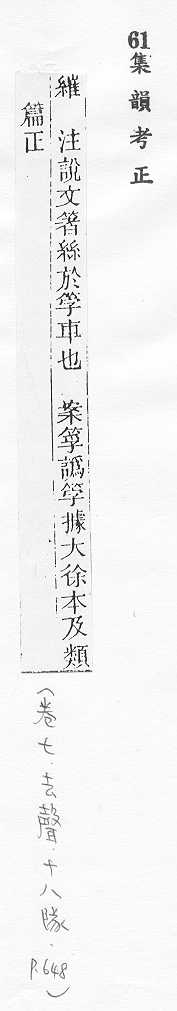 61集韻考正
繀　注說文箸絲於筟車也　案箏譌筟據大徐本及類
篇正
(卷七·去聲·十八隊·P.648)